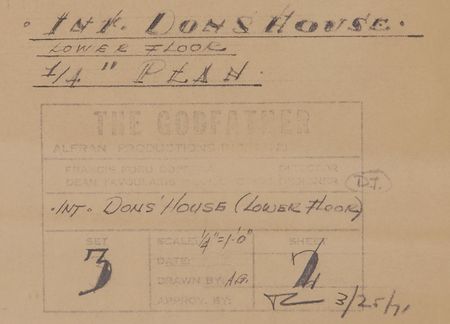 · INT. DON'S HOUSE.
LOWER FLOOR
1/4" PLAN.
THE GODFATHER
ALFRAN PRODUCTIONS
FRANCIS FORD DIRECTOR
DEAN TAVOULARIS
D.T.
·INT· DONS' HOUSE (LOWER FLOOR)
SET SCALE: 1/4"=1'-0" SHEET
3 DATE: 2
DRAWN BY: A.G.
APPROV. BY: 3/25/71